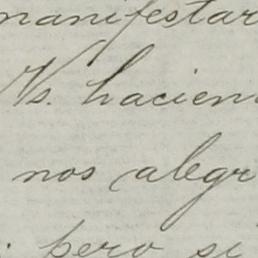 manifestar
Vs. hacien
nos alegr
pero si